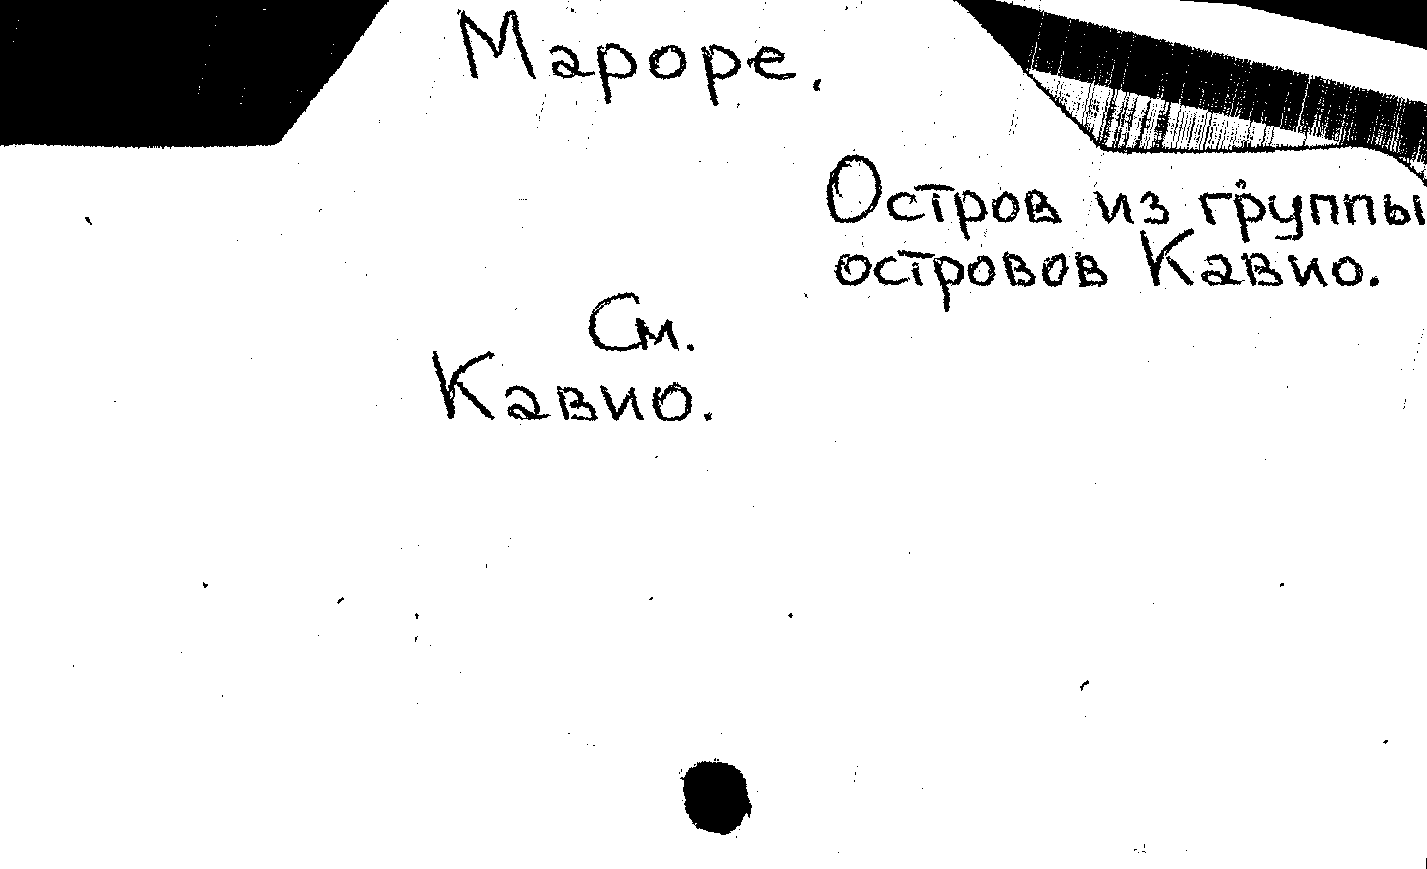 Мароре.
Остров из группы
островов Кавио.
См.
Кавио.